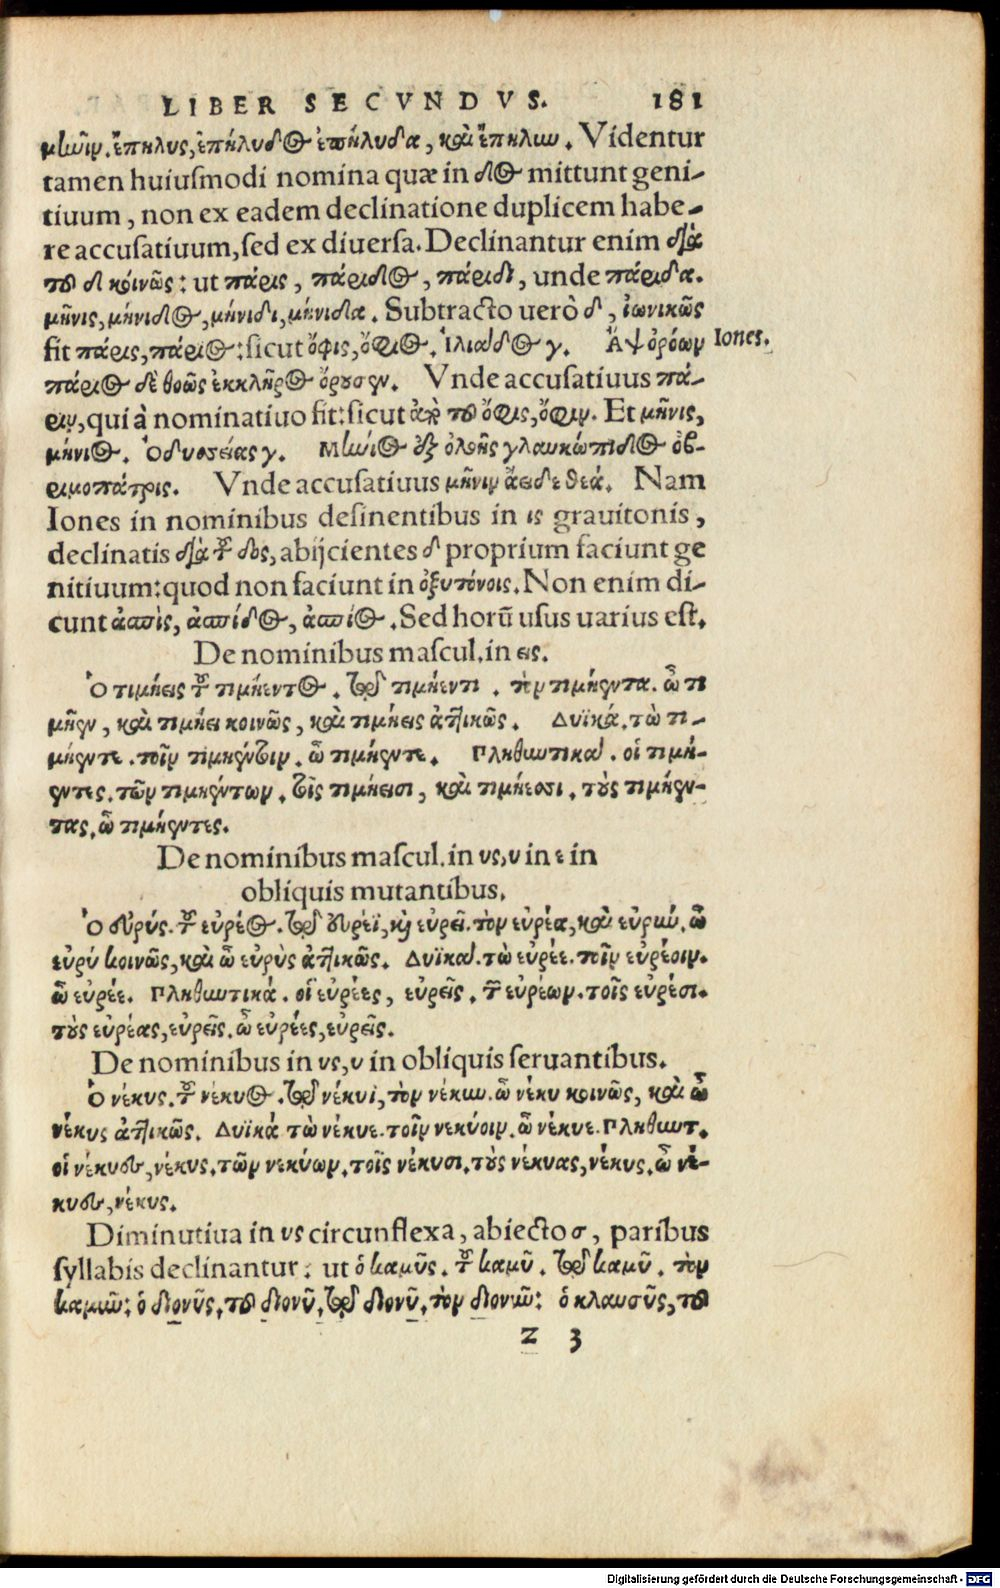 LIBER SECVNDVS. 181
μῆνιν. ἔπηλυς, ἐπήλυδος ἐπήλυδα, καὶ ἔπηλυν. Videntur
tamen huiusmodi nomina quæ in δος mittunt geni-
tiuum, non ex eadem declinatione duplicem habe-
re accusatiuum, sed ex diuersa. Declinantur enim διὰ
τοῦ δι κοινῶς: ut πάρις, πάριδος, πάριδι, unde πάριδα.
μῆνις, μήνιδος, μήνιδι, μήνιδα. Subtracto uerò δ, ἰωνικῶς
fit πάρις, πάριος: sicut ὄφις, ὄφιος. Ἰλιάδος γ. Ἂψ ὁρόων Iones.
πάριος δὲ θοῶς ἐκκλῆρος ὄρουσεν. Vnde accusatiuus πά-
ριν, qui à nominatiuo fit: sicut ἀπὸ τοῦ ὄφις, ὄφιν. Et μῆνις,
μήνιος. Ὀδυσσείας γ. Μήνιος ἐξ ὀλοῆς γλαυκώπιδος ὀβ-
ριμοπάτρις. Vnde accusatiuus μῆνιν ἄειδε θεά. Nam
Iones in nominibus desinentibus in ις grauitonis,
declinatis διὰ τοῦ δος, abijcientes δ proprium faciunt ge
nitiuum: quod non faciunt in ὀξυτόνοις. Non enim di-
cunt ἀσπὶς, ἀσπίδος, ἀσπίος. Sed horũ usus uarius est.
De nominibus mascul. in εις.
Ὁ τιμήεις τοῦ τιμήεντος. τῷ τιμήεντι. τὸν τιμήεντα. ὦ τι
μῆεν, καὶ τιμήει κοινῶς, καὶ τιμήεις ἀττικῶς. Δυϊκά. τὼ τι-
μήεντε. τοῖν τιμηέντοιν. ὦ τιμήεντε. Πληθυντικαί. οἱ τιμή-
εντες. τῶν τιμηέντων. τοῖς τιμήεισι, καὶ τιμήεσσι. τοὺς τιμήεν-
τας. ὦ τιμήεντες.
De nominibus mascul. in υς, υ in ε in
obliquis mutantibus.
Ὁ εὐρύς. τοῦ εὐρέος. τῷ εὐρέϊ, καὶ εὐρεῖ. τὸν εὐρέα, καὶ εὐρύν. ὦ
εὐρύ κοινῶς, καὶ ὦ εὐρὺς ἀττικῶς. Δυϊκαί. τὼ εὐρέε. τοῖν εὐρέοιν.
ὦ εὐρέε. Πληθυντικά. οἱ εὐρέες, εὐρεῖς. τῶν εὐρέων. τοῖς εὐρέσι.
τοὺς εὐρέας, εὐρεῖς. ὦ εὐρέες, εὐρεῖς.
De nominibus in υς, υ in obliquis seruantibus.
Ὁ νέκυς. τοῦ νέκυος. τῷ νέκυϊ, τὸν νέκυν. ὦ νέκυ κοινῶς, καὶ ὦ
νέκυς ἀττικῶς. Δυϊκά τὼ νέκυε. τοῖν νεκύοιν. ὦ νέκυε. Πληθυντ.
οἱ νέκυες, νέκυς. τῶν νεκύων. τοῖς νέκυσι. τοὺς νέκυας, νέκυς. ὦ νέ-
κυες, νέκυς.
Diminutiua in υς circunflexa, abiecto σ, paribus
syllabis declinantur: ut ὁ καμῦς. τοῦ καμῦ. τῷ καμῦ. τὸν
καμῦν: ὁ διονῦς, τοῦ διονῦ, τῷ διονῦ, τὸν διονῦν: ὁ κλαυσῦς, τοῦ
Z 3
Digitalisierung gefördert durch die Deutsche Forschungsgemeinschaft - DFG